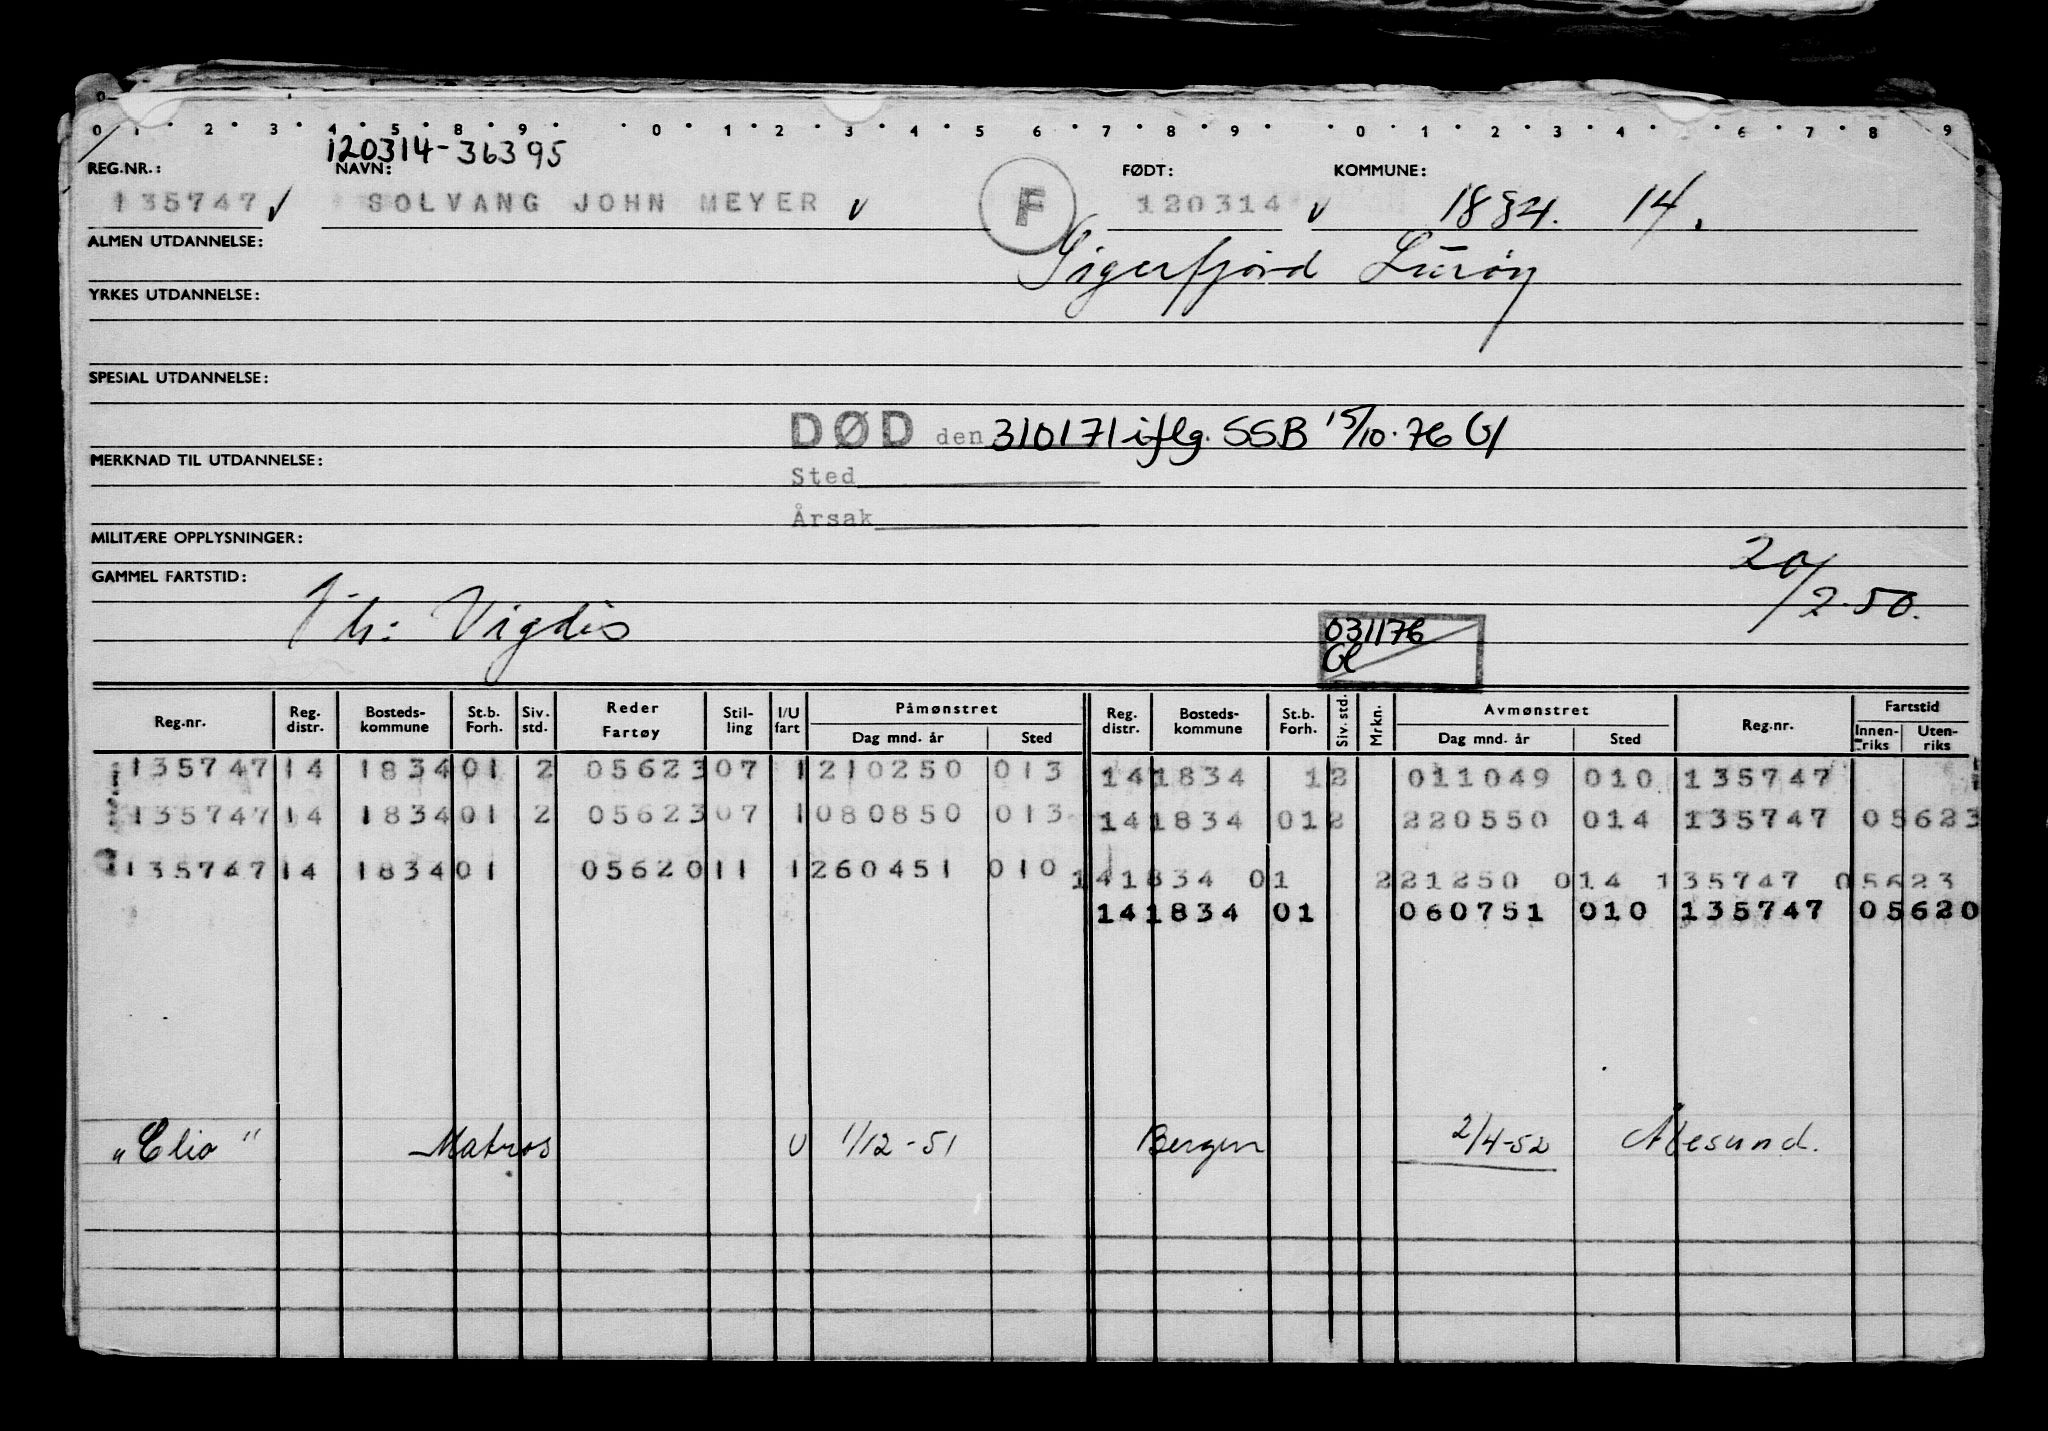 0 1 2 3 4 5 8 9 0 1 2 3 4 5 6 7 8 9 0 1 2 3 4 5 6 7 8 9
120314-36395
REG.NR.: NAVN: FØDT: KOMMUNE:
135747 SOLVANG JOHN MEYER F 120314 1834. 14.
ALMEN UTDANNELSE: Sigerfjord Lurøy
YRKES UTDANNELSE:
SPESIAL UTDANNELSE:
DØD den 310171 iflg. SSB 15/10.76 Gl
MERKNAD TIL UTDANNELSE:
Sted
Årsak
MILITÆRE OPPLYSNINGER:
GAMMEL FARTSTID: 20/2.50.
Vigdis
031176
Gl
Reg.nr. Reg. distr. Bosteds-kommune St.b. Forh. Siv. std. Reder Fartøy Stil-ling I/U fart Påmønstret Dag mnd. år Sted Reg. distr. Bosteds-kommune St.b. Forh. Siv. std. Mrkn. Avmønstret Dag mnd. år Sted Reg.nr. Fartstid Innen-riks Uten-riks
135747 14 1834 01 2 05623 07 1 210250 013 14 1834 1 2 011049 010 135747
135747 14 1834 01 2 05623 07 1 080850 013 14 1834 01 2 220550 014 135747 05623
135747 14 1834 01 05620 11 1 260451 010 14 1834 01 221250 014 135747 05623
14 1834 01 060751 010 135747 05620
„Clio" Matros U 1/12-51 Bergen 2/4-52 Ålesund.